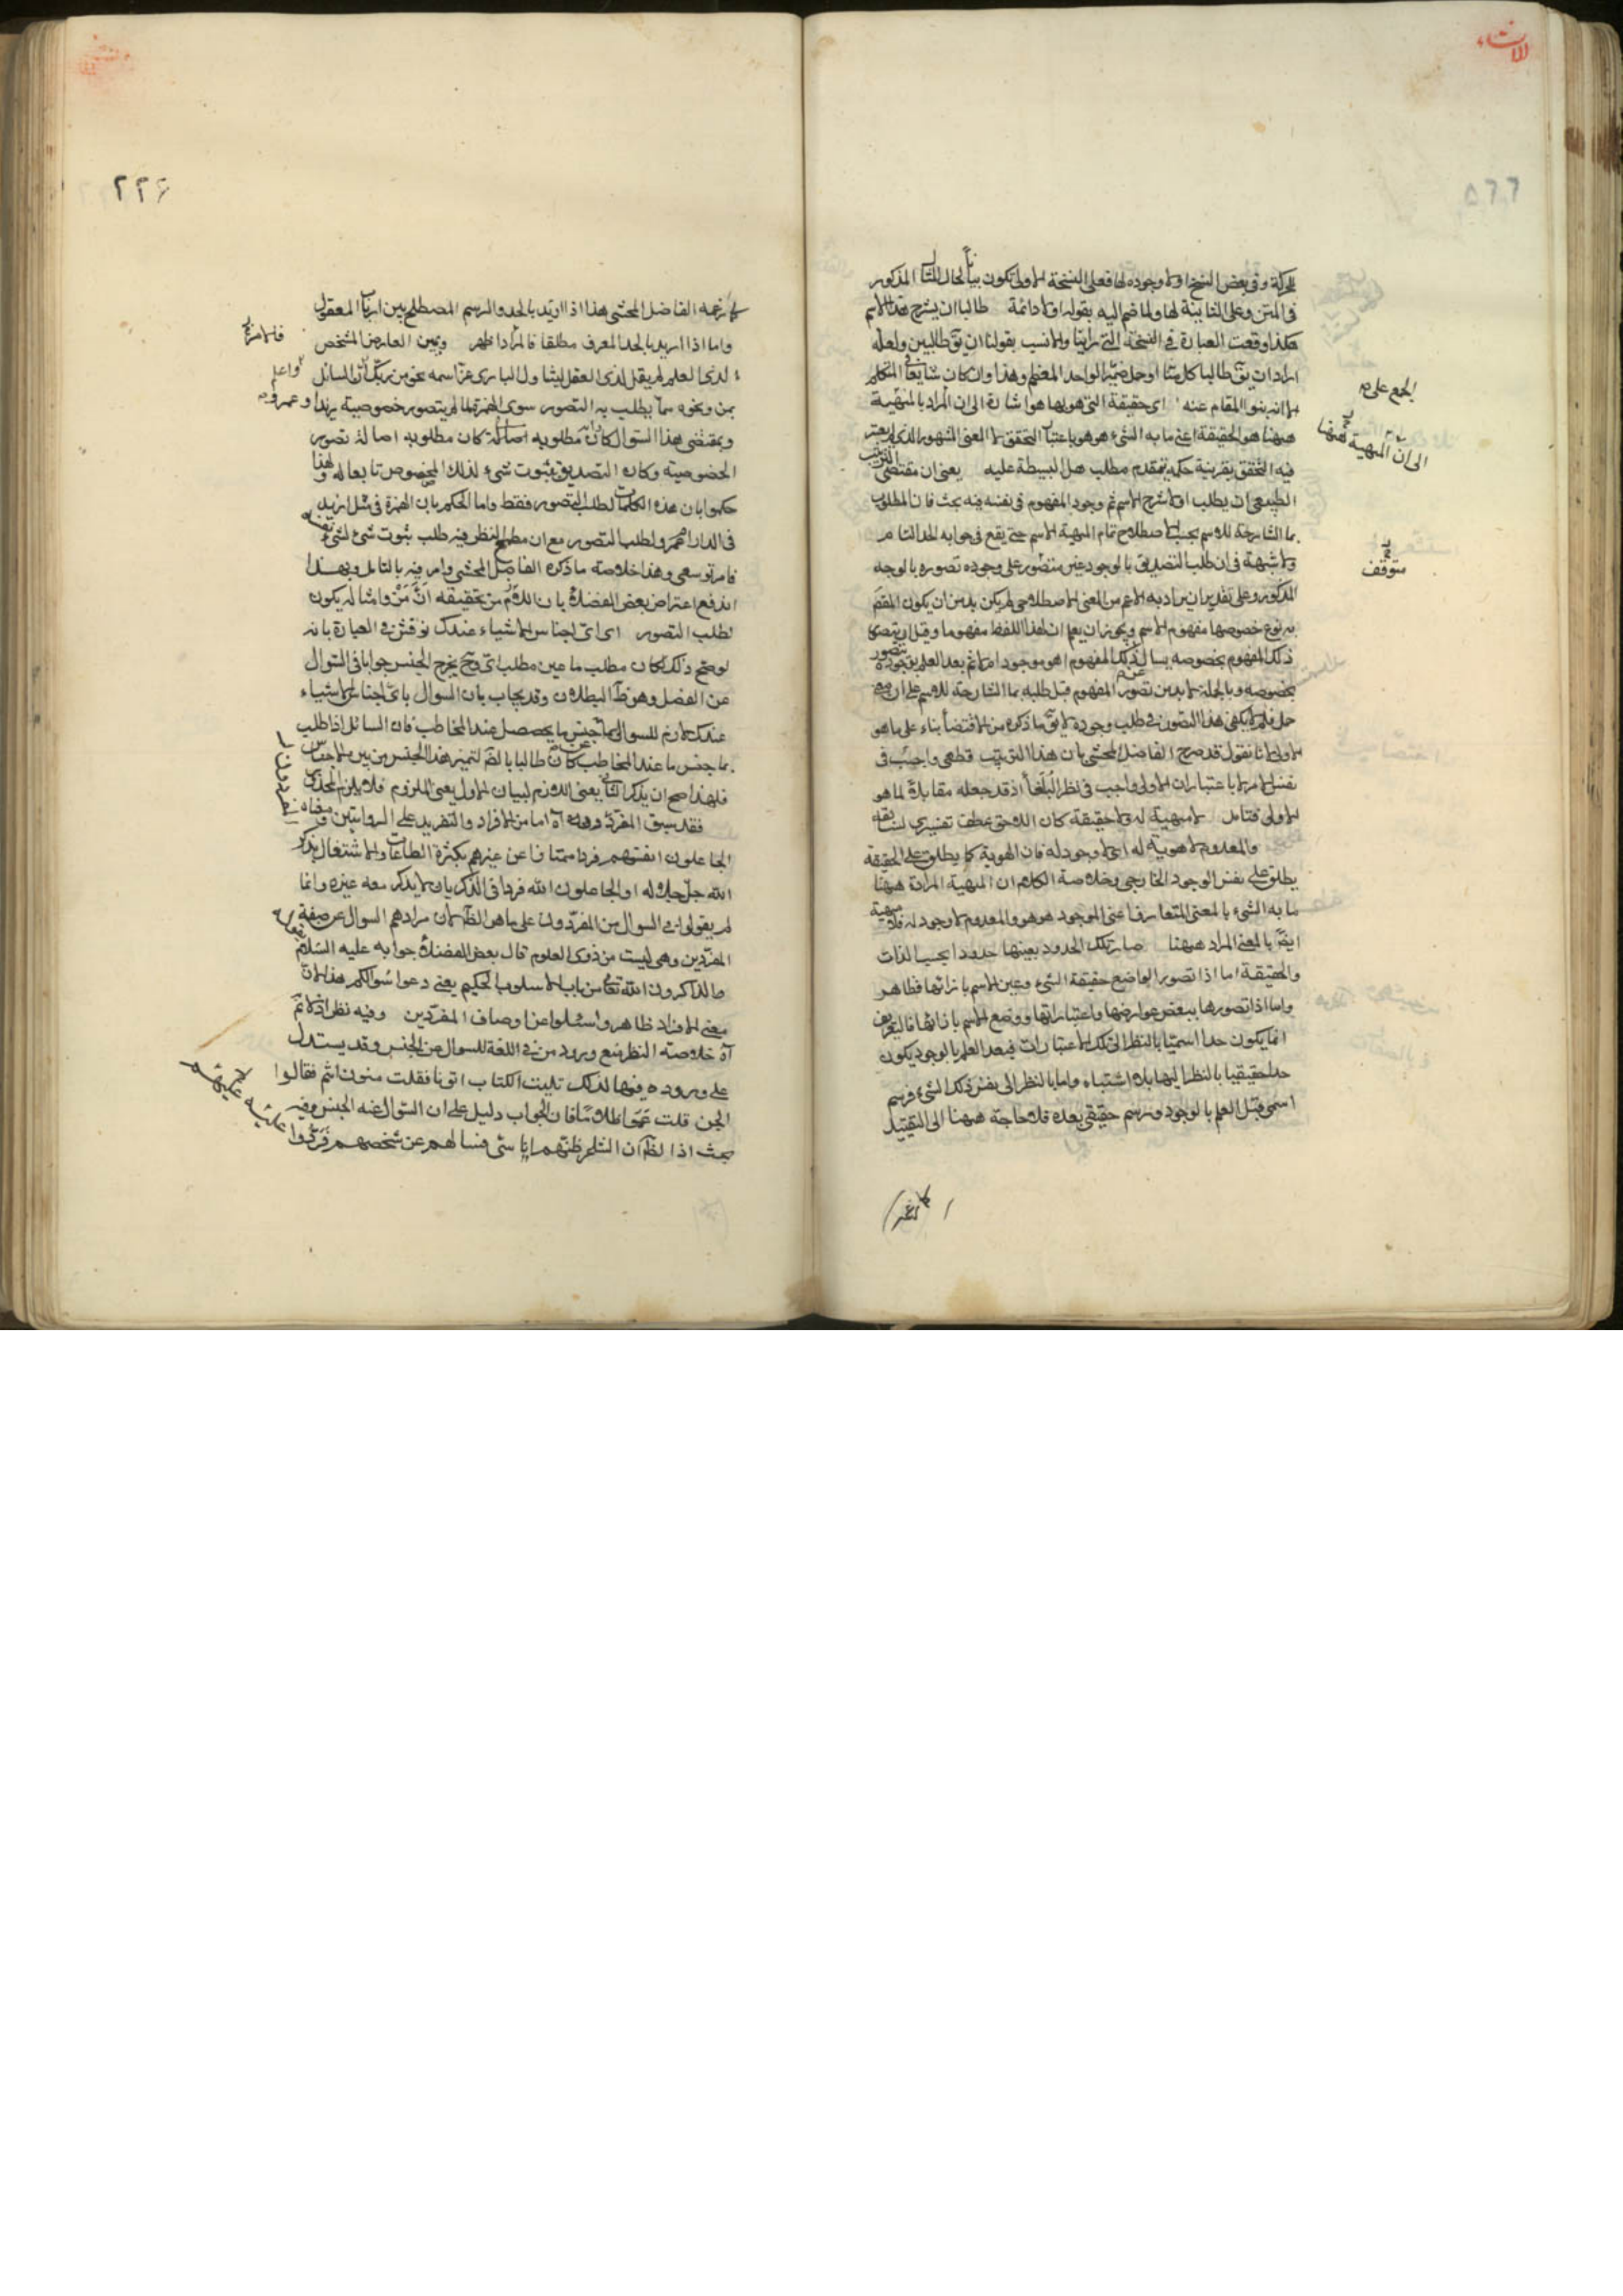 الانشاء
للحركة وفى بعض النسخ اولا وجوده لها فعلى النسخة الاولى تكون بيانا لحال المثال المذكور
فى المتن وعلى الثانية لها ولما ضم اليه بقوله اولا دائمة طالبا ان يشرح هذا الاسم
هكذا وقعت العبارة فى النسخة التى رايناها والانسب بقولنا ان يق طالبين ولعله
اراد ان يق طالبا كل منا او حمل ضمير الواحد المعظم وهذا وان كان شايعا فى المتكلم
الا انه ينبو المقام عنه اى حقيقة التى هو بها هو اشارة الى ان المراد بالمهية
ههنا هو الحقيقة اعنى ما به الشىء هو هو باعتبار التحقق لا المعنى المشهور الذى لم يعتبر
فيه التحقق بقرينة حكمه بتقدم مطلب هل البسيطة عليه يعنى ان مقتضى الترتيب
الطبيعى ان يطلب اولا شرح الاسم ثم وجود المفهوم فى نفسه فيه بحث فان المطلوب
بما الشارحة للاسم بحسب الاصطلاح تمام المهية الاسم حتى يقع فى جوابه الحد التام
ولا شبهة فى ان طلب التصديق بالوجود غير متصور على وجوده تصوره بالوجه
المذكور وعلى تقدير ان يراد به الاعم من المعنى الاصطلاحى لم يكن بد من ان يكون المقصود
به نوع خصوصها مفهوم الاسم ويجوز ان يعلم ان لهذا اللفظ مفهوما وقبل ان يتصور
ذلك المفهوم بخصوصه يسال عن ذلك المفهوم اهو موجود ام لا ثم بعد العلم بوجوده
بخصوصه وبالجملة لا بد من تصور المفهوم قبل طلبه بما الشارحة للاسم على ان
حل فلم لا يكفى هذا التصور فى طلب وجوده لا يق ما ذكره من الاقتضاء بناء على ما هو
الاولى لانا نقول قد صرح الفاضل المحشى بان هذا الترتيب قطعى واجب فى
نفس الامر لا باعتبار ان الاولى واجب فى نظر البلغاء اذ قد جعله مقابلا لما هو
الاولى فتامل لا مهية له ولا حقيقة كان اللاحق عطف تفسيرى لسابقه
والمعدوم لا هوية له اى لا وجود له فان الهوية كما يطلق على الحقيقة
يطلق على نفس الوجود الخارجى وخلاصة الكلام ان المهية المرادة ههنا
ما به الشىء بالمعنى المتعارف اعنى الموجود هو هو والمعدوم لا وجود له فلا مهية
ايضا بالمعنى المراد ههنا صار تلك الحدود بعينها حدودا بحسب الذات
والحقيقة اما اذا تصور الواضع حقيقة الشىء وعين الاسم بازائها فظاهر
واما اذا تصورها ببعض عوارضها واعتباراتها ووضع الاسم بازائها فالتعريف
انما يكون حدا اسميا بالنظر الى تلك الاعتبارات فبعد العلم بالوجود يكون
حدا حقيقيا بالنظر اليها بلا اشتباه واما بالنظر الى نفس ذلك الشىء فرسم
اسمى قبل العلم بالوجود ورسم حقيقى بعده فلا حاجة ههنا الى التقييد
الجمع على
الى ان المهية ههنا
متوقف
٢٢٦
كما زعمه الفاضل المحشى هذا اذا اريد بالحد والرسم المصطلح بين ارباب المعقول
واما اذا اريد بالحد المعرف مطلقا فالمراد اظهر وبمن العارض المشخص
لذى العلم لم يقل لذى العقل ليتناول البارى عز اسمه نحو من ربك لان السائل
بمن ونحوه مما يطلب به التصور سوى الهمزة لما لم يتصور خصوصية زيد او عمرو
وبمقتضى هذا السؤال كان مطلوبه اصالة كان مطلوبه اصالة تصور
الخصوصية وكان التصديق بثبوت شىء لذلك المخصوص تابعا له ولهذا
حكموا بان هذه الكلمات لطلب التصور فقط واما الحكم بان الهمزة فى مثل ازيد
فى الدار ام عمرو لطلب التصور مع ان مطمح النظر فيه طلب ثبوت شىء لشىء
فامر توسعى وهذا خلاصة ما ذكره الفاضل المحشى وامر فيه بالتامل وبهذا
اندفع اعتراض بعض الفضلاء بان اللازم من تحقيقه ان من وامثاله يكون
لطلب التصور اى اى اجناس الاشياء عندك نوقش فى العبارة بانه
لو صح ذلك لكان مطلب ما عين مطلب اى وح يخرج الجنس جوابا فى السؤال
عن الفصل وهو ظ البطلان وقد يجاب بان السوال باى اجناس الاشياء
عندك لازم للسوال بما جنس ما يحصل عند المخاطب فان السائل اذا طلب
بما جنس ما عند المخاطب كان طالبا بالضرورة لتميز هذا الجنس من بين الاجناس
فلهذا صح ان يذكر الثانى يعنى اللازم لبيان الاول يعنى الملزوم فلا يلزم المحذور
فقد سبق المفردون اه اما من الافراد والتفريد على الروايتين
الجاعلون انفسهم فردا ممتازا عن غيرهم بكثرة الطاعات والاشتغال بذكر
الله جل جلاله او الجاعلون الله فردا فى الذكر بان لا يذكر معه غيره وانما
لم يقولوا فى السوال من المفردون على ما هو الظاهر لان مرادهم السوال عن صفة
المفردين وهى ليست من ذوى العلوم قال بعض الفضلاء جوابه عليه السلام
والذاكرون الله تعالى من باب الاسلوب الحكيم يعنى دعوا سؤالكم هذا لان
معنى الافراد ظاهر واسئلوا عن اوصاف المفردين وفيه نظر اذ لا تم
اه خلاصة النظر منع ورود من فى اللغة للسوال عن الجنس وقد يستدل
على وروده فيها لذلك ببيت الكتاب اتوا نارى فقلت منون انتم فقالوا
الجن قلت عموا ظلاما فان الجواب دليل على ان السؤال عنه الجنس وفيه
بحث اذا الظاهر ان الشاعر ظنهم اناسى فسالهم عن شخصهم فردوا
واعلم